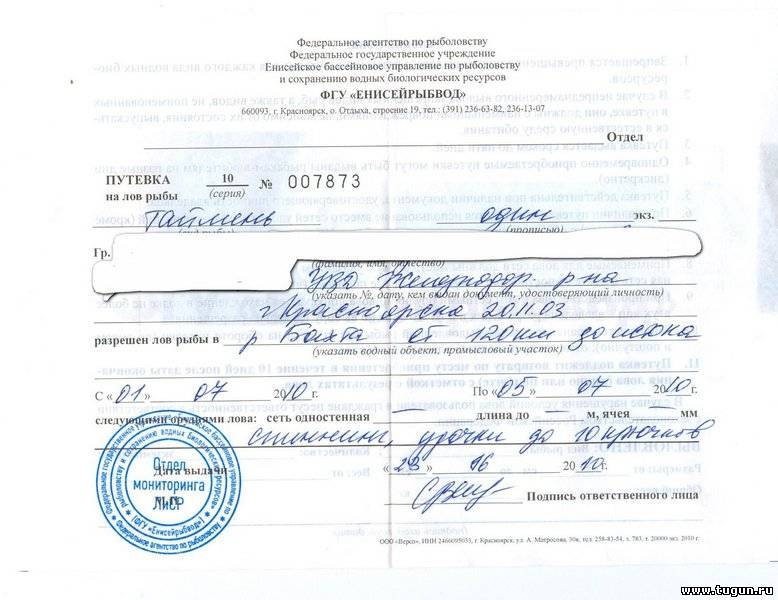 Федеральное агентство по рыболовству
Федеральное государственное учреждение
Енисейское бассейновое управление по рыболовству
и сохранению водных биологических ресурсов
ФГУ «ЕНИСЕЙРЫБВОД»
660093, г. Красноярск, о. Отдыха, строение 19, тел.: (391) 236-63-82, 236-13-07
Отдел
ПУТЕВКА 10 № 007873
на лов рыбы (серия)
таймень один экз.
(прописью)
Гр.
(фамилия, имя, отчество)
УВД Железнодор. р-на
(указать №, дату, кем выдан документ, удостоверяющий личность)
г. Красноярска 20.11.03
разрешен лов рыбы в р Бахта от 120 км до
(указать водный объект, промысловый участок)
С «01» 07 2010 г. По «05» 07 2010 г.
следующими орудиями лова: сеть одностенная — длина до — м, ячея — мм
спиннинг, удочки до 10 крючков
Дата выдачи «23» 06 2010 г.
М.П.
Подпись ответственного лица
Отдел
мониторинга
(ФГУ «Енисейрыбвод»)
Федеральное агентство по рыболовству
ООО «Версо», ИНН 2466095033, г. Красноярск, ул. А. Матросова, 30и, тел. 258-83-54, з. 783, т. 20000 экз. 2010 г.
www.tugun.ru